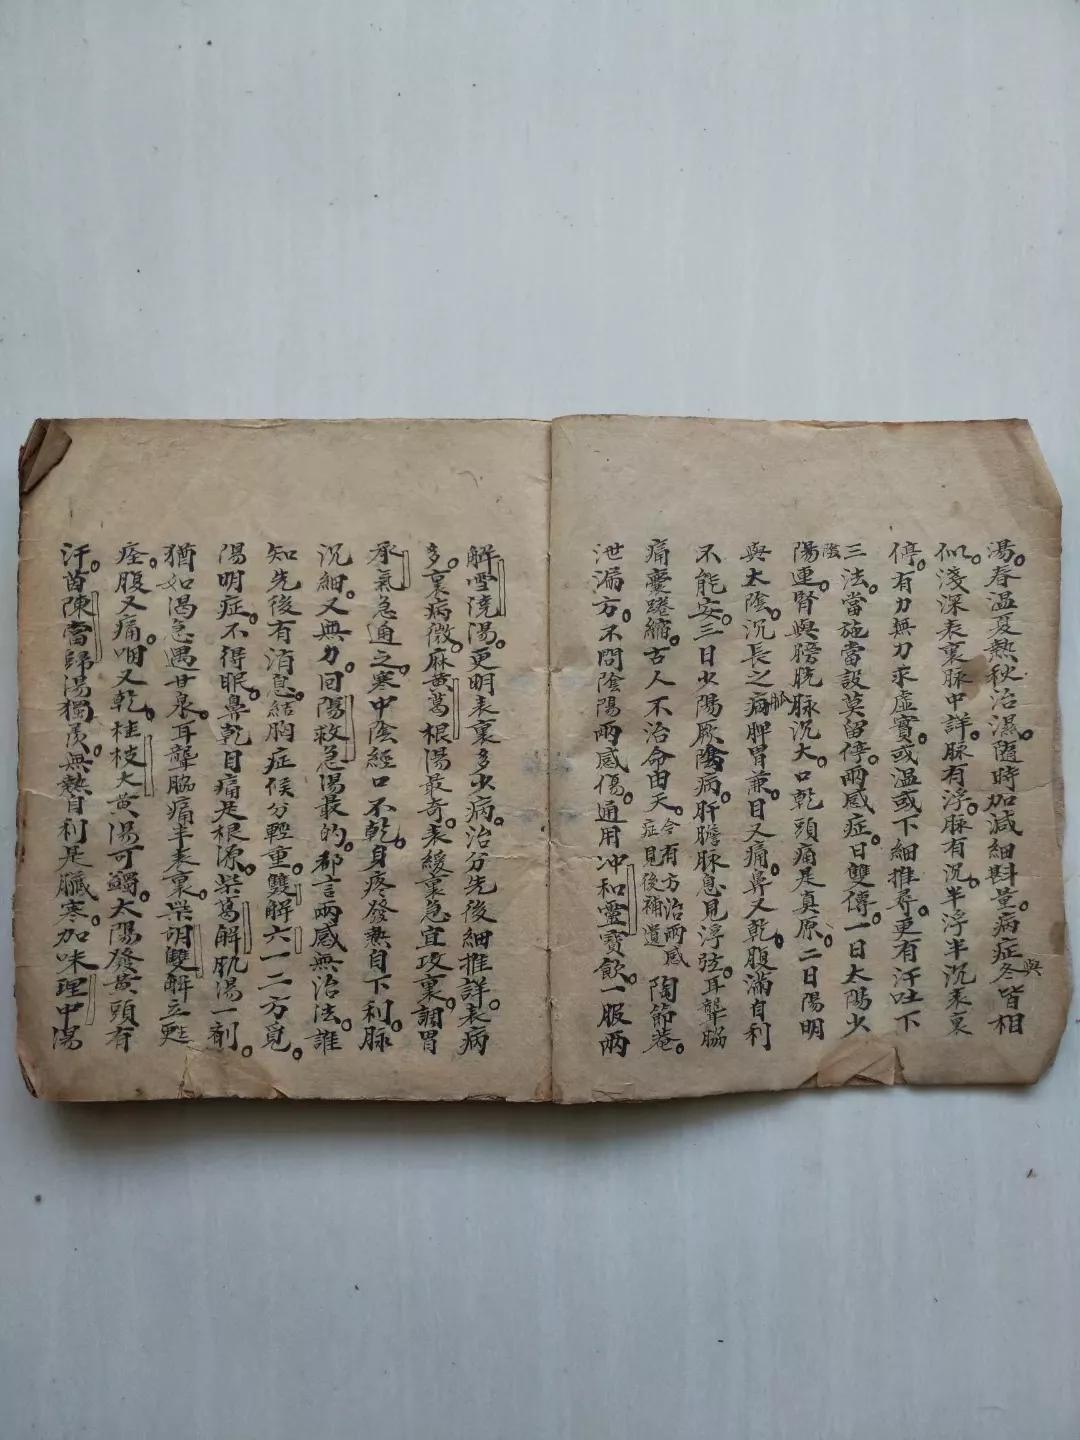 湯。春温夏熱秋治濕。隨時加減細斟量。病症與冬皆相
似。淺深表裏脉中詳。脉有浮。脉有沉。半浮半沉表裏
停。有力無力求虛實。或温或下細推尋。更有汗吐下
三法。當施當設莫留停。兩感症。日雙傳。一日太陽少
陰
陽連。腎與膀胱脉沉大。口乾頭痛是真原。二日陽明
與太陰。沉長之病脾胃兼。目又痛。鼻又乾。腹滿自利
不能安。三日少陽厥陰病。肝膽脉息見浮弦。耳聾脇
痛囊踡縮。古人不治命由天。今有方治兩感症見後補遺 陶節菴。
泄漏方。不問陰陽兩感傷。通用冲和靈寶飲。一服兩
解雪澆湯。更明表裏多少病。治分先後細推詳。表病
多。裏病微。麻黄葛根湯最奇。表緩裏急宜攻裏。調胃
承氣急通之。寒中陰經口不乾。身疼發熱自下利。脉
沉細。又無力。回陽救急湯最的。都言兩感無治法。誰
知先後有消息。結胸症候分輕重。雙解六一二方覓。
陽明症。不得眠。鼻乾目痛是根源。柴葛解肌湯一劑。
猶如渴急遇甘泉。耳聾脇痛半表裏。柴胡雙解立甦
痊。腹又痛。咽又乾。桂枝大黄湯可蠲。太陽發黄頭有
汗。茵陳當歸湯獨羨。無熱自利是臟寒。加味理中湯